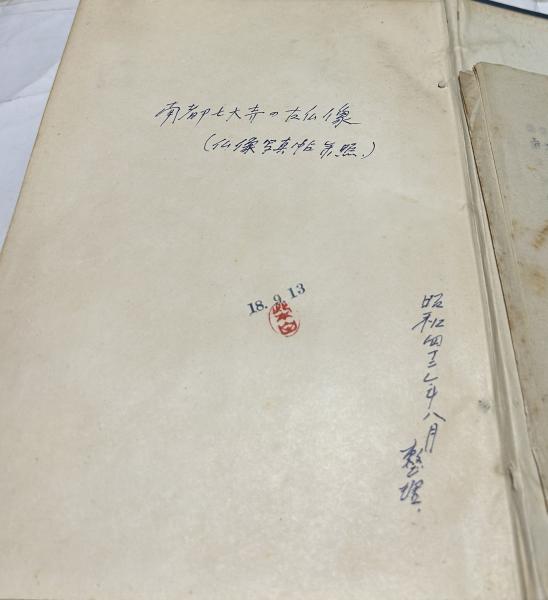 南都七大寺の古仏像
(仏像写真帖参照.)
18.9.13
昭和四十三年八月 整理.